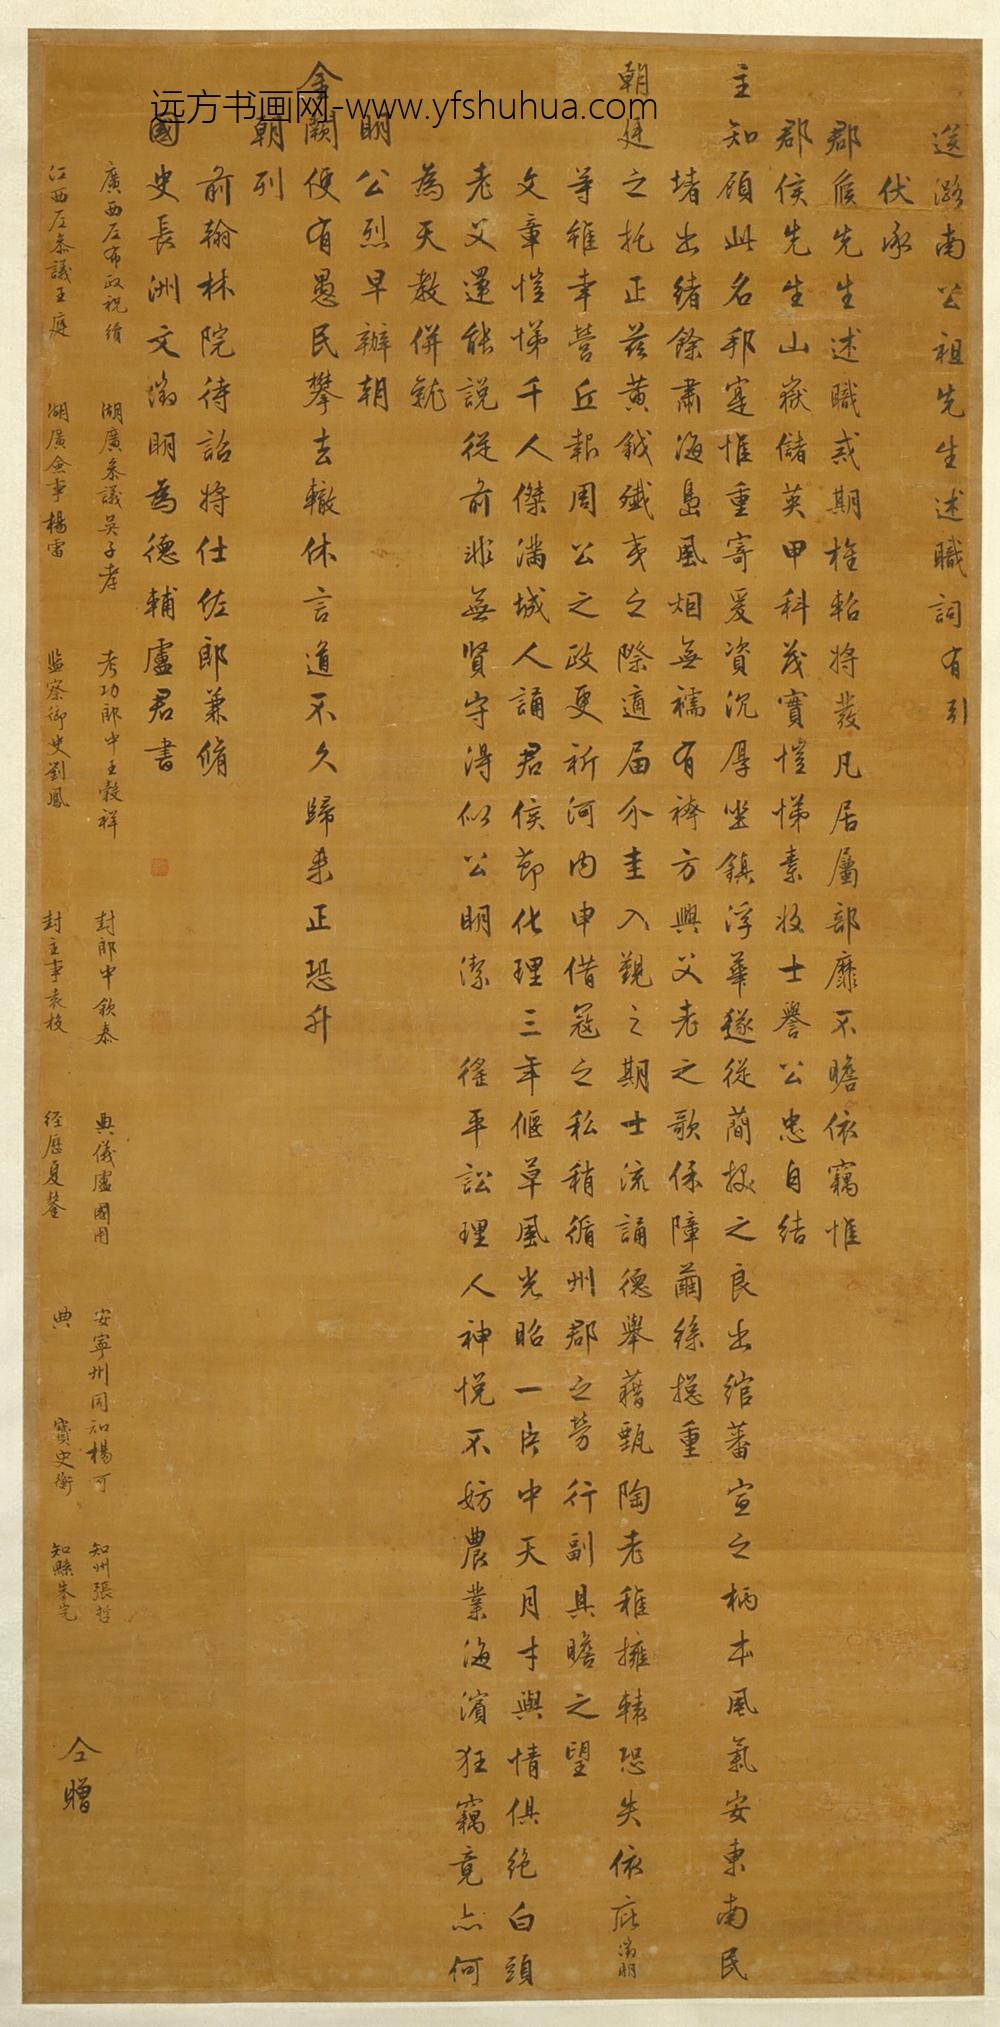 送潞南公祖先生述職詞有引
伏承
郡侯先生述職戒期旌軺將發凡居屬部靡不瞻依竊惟
郡侯先生山嶽儲英甲科茂實愷悌素收士譽公忠自結
主知顧此名邦寔惟重寄爰資沉厚坐鎮浮華遂從簡授之良出綰蕃宣之柄本風氣安東南民
堵出緒餘肅海島風烟無襦有袴方興父老之歌保障繭絲揔重
朝廷之托正茲黃鉞殲夷之際適届介圭入觀之期士流誦德舉藉甄陶老稚擁轅恐失依庇徵明
等雖幸營丘報周公之政更祈河內申借寇之私稍循州郡之勞行副具瞻之望
文章愷悌千人傑滿城人誦君侯節化理三年偃草風光昭一片中天月才與情俱絕白頭
老父還能說從前非無賢守得似公明潔 徭平訟理人神悅不妨農業海濱狂竊竟亦何
為天教併就
明公烈早辦朝
金闕便有愚民攀去轍休言道不久歸來正恐升
朝列
前翰林院待詔將仕佐郎兼脩
國史長洲文徵明為德輔盧君書
廣西左布政祝續 湖廣參議吳子孝 考功郎中王穀祥 封郎中欽泰 典儀盧國用 安寧州同知楊可 知州張哲
江西左參議王庭 湖廣僉事楊雷 監察御史劉鳳 封主事袁校 經歷夏鏊 典寶史衡 知縣朱宅
仝贈
远方书画网-www.yfshuhua.com